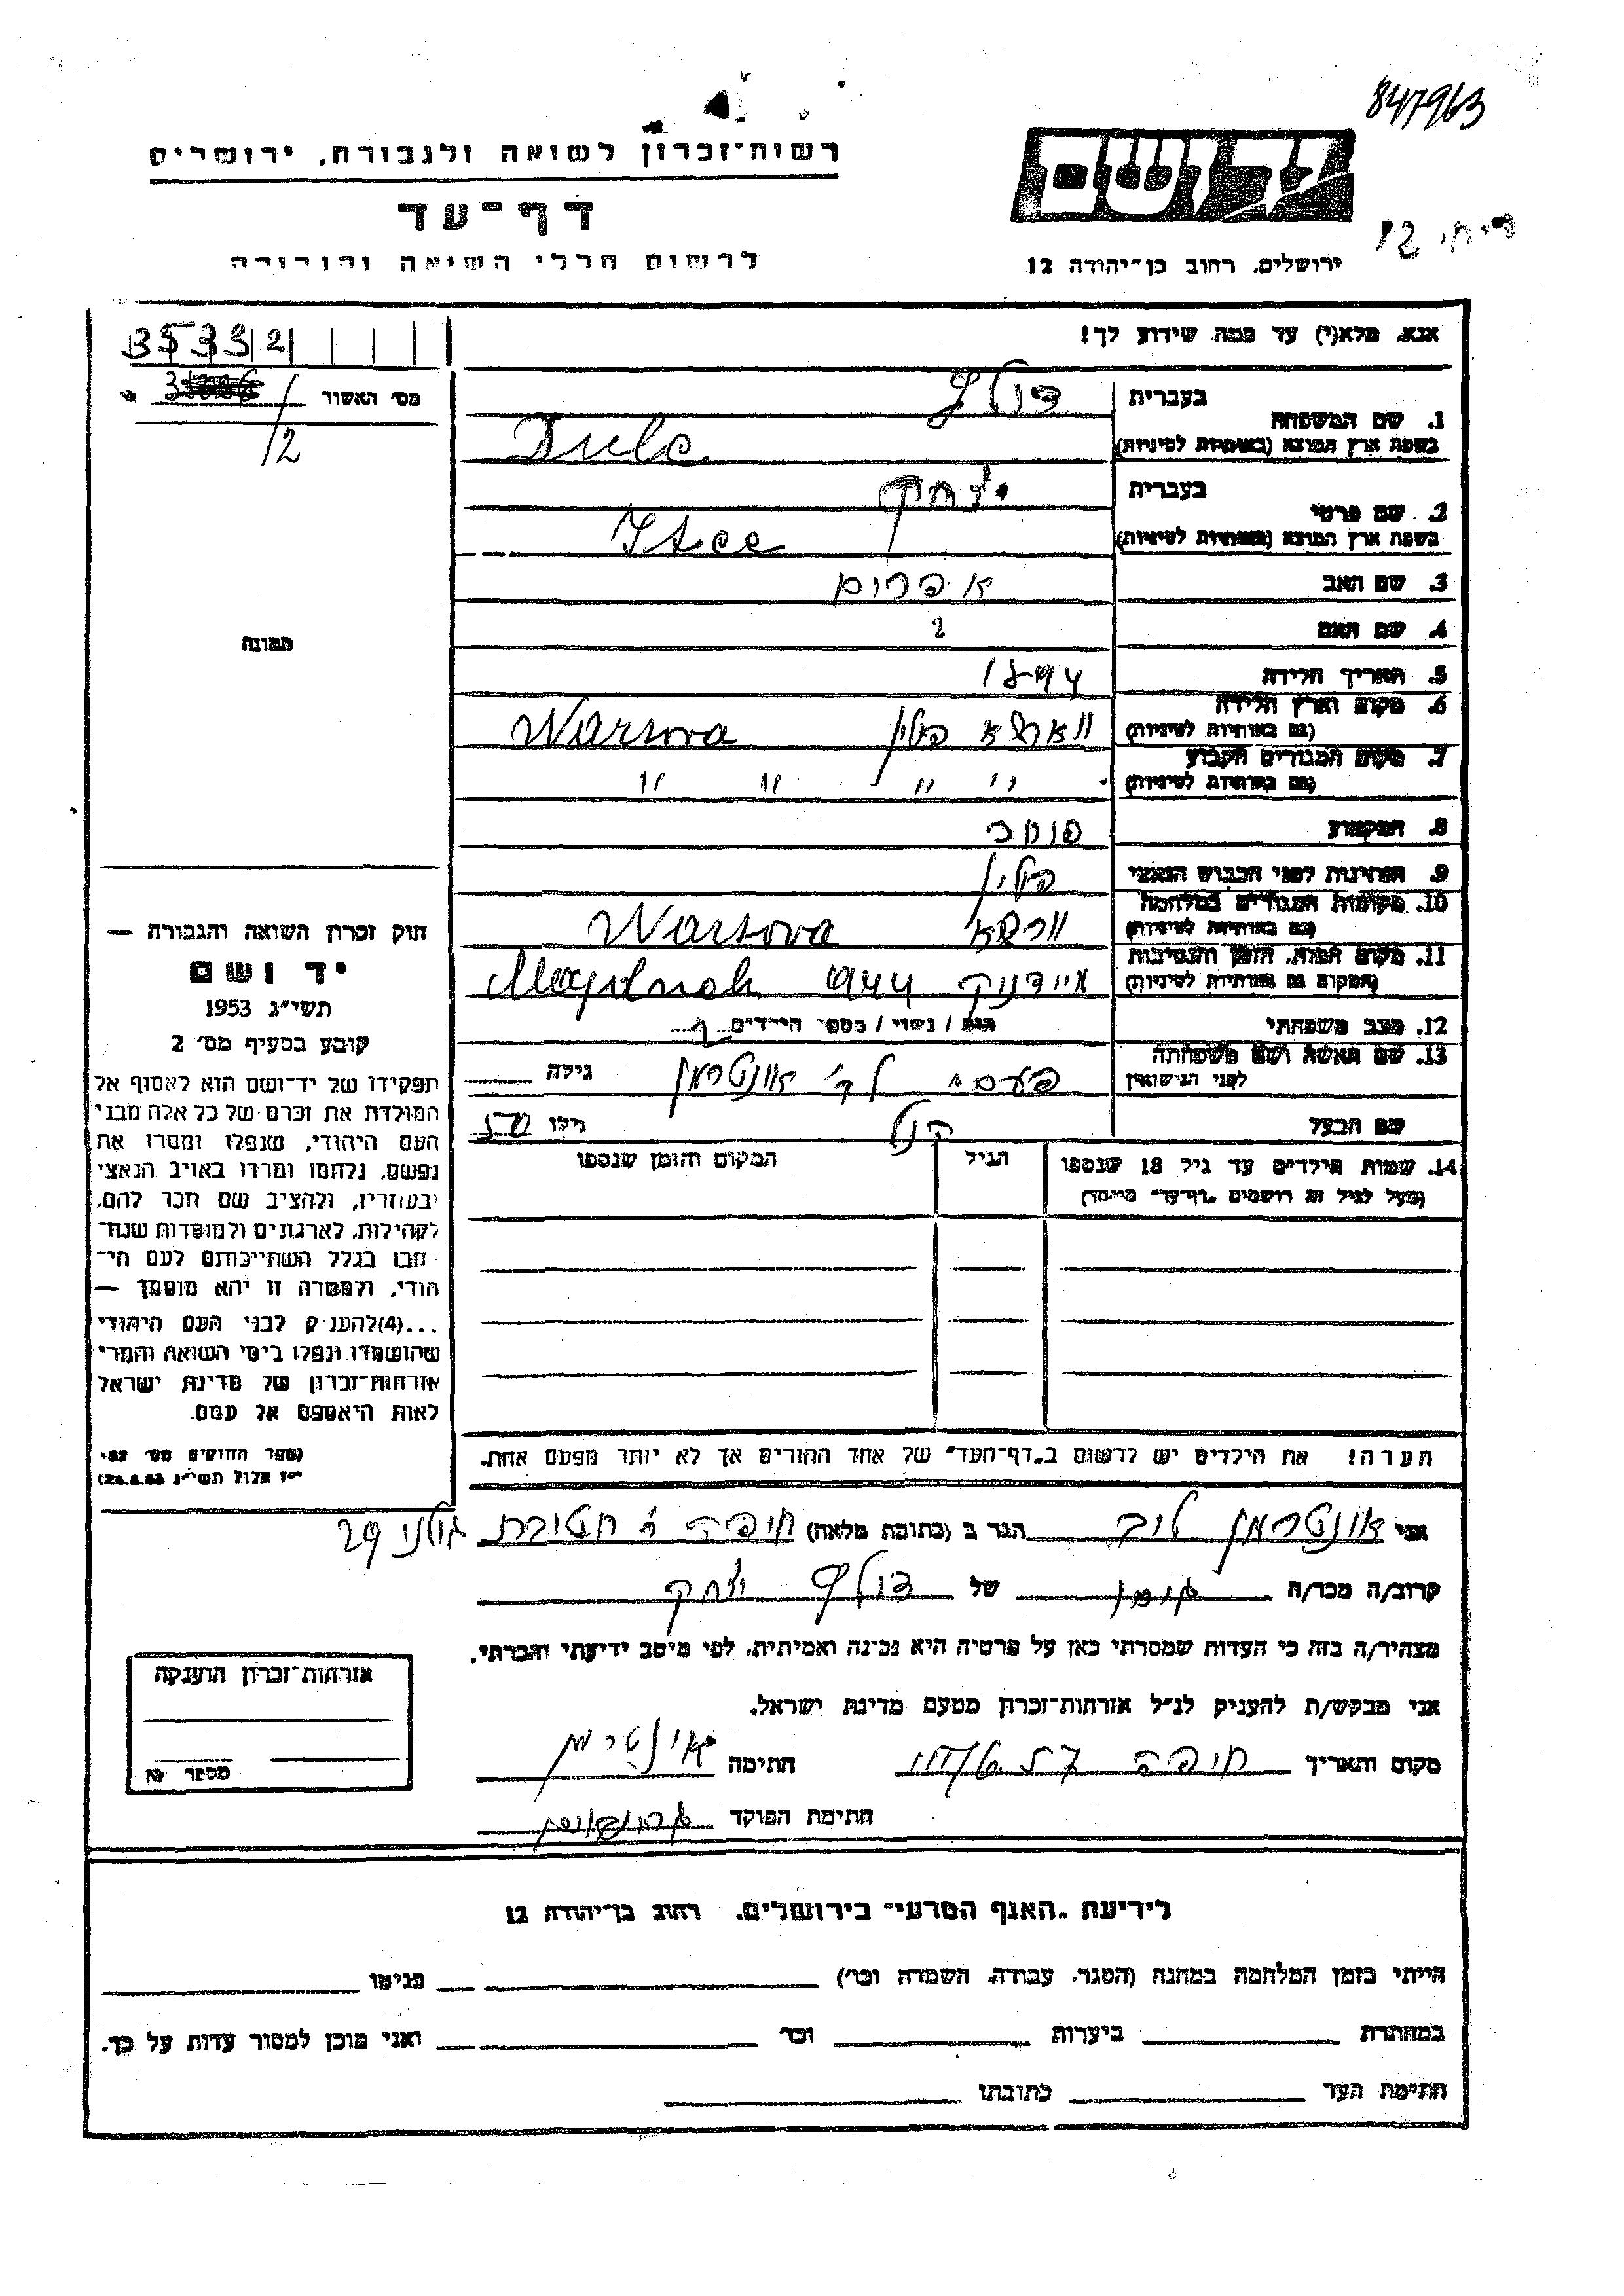 847963
רשות־זכרון לשואה ולגבורה, ירושלים
יד ושם
דף־עד
לרשום חללי השואה והגבורה
ירושלים, רחוב בן־יהודה 12
אנא, מלא(י) עד כמה שידוע לך!
35332
מס׳ האשור
12
בעברית
1. שם המשפחה
בשפת ארץ המוצא (באותיות לטיניות)
בעברית יצחק
2. שם פרטי
בשפת ארץ המוצא (באותיות לטיניות)
3. שם האב אפרים
4. שם האם
תמונה
5. תאריך הלידה 1894
6. מקום וארץ הלידה ווארשא פולין Warsova
(גם באותיות לטיניות)
7. מקום המגורים הקבוע
(גם באותיות לטיניות) " " " "
8. המקצוע סוחר
9. הנתינות לפני הכבוש הנאצי פולין
10. מקומות המגורים במלחמה
(גם באותיות לטיניות) Warsova
11. מקום המות, הזמן והנסיבות
(המקום גם באותיות לטיניות) מיידנק 944
12. מצב משפחתי רוק / נשוי / מספר הילדים
13. שם האשה ושם משפחתה
לפני הנישואין אונטרמן גילה
שם הבעל גילו 50
14. שמות הילדים עד גיל 18 שנספו הגיל המקום והזמן שנספו
(מעל לגיל זה רושמים „דף־עד״ מיוחד)
חוק זכרון השואה והגבורה —
יד ושם
תשי״ג 1953
קובע בסעיף מס׳ 2
תפקידו של יד־ושם הוא לאסוף אל
המולדת את זכרם של כל אלה מבני
העם היהודי, שנפלו ומסרו את
נפשם, נלחמו ומרדו באויב הנאצי
ובעוזריו, ולהציב שם וזכר להם,
לקהילות, לארגונים ולמוסדות שנח־
רבו בגלל השתייכותם לעם הי־
הודי, ולמטרה זו יהא מוסמך —
...(4)להעניק לבני העם היהודי
שהושמדו ונפלו בימי השואה והמרי
אזרחות־זכרון של מדינת ישראל
לאות היאספם אל עמם.
(ספר החוקים מס׳
י״ז אלול תשי״ג
הערה! את הילדים יש לרשום ב„דף־העד״ של אחד ההורים אך לא יותר מפעם אחת.
אני אונטרמן הגר ב (כתובת מלאה) חיפה ר׳ חטיבת גולני 29
קרוב/ה מכר/ה של יצחק
מצהיר/ה בזה כי העדות שמסרתי כאן על פרטיה היא נכונה ואמיתית, לפי מיטב ידיעתי והכרתי.
אני מבקש/ת להעניק לנ״ל אזרחות־זכרון מטעם מדינת ישראל.
מקום ותאריך חיפה חתימה אונטרמן
חתימת הפוקד
אזרחות־זכרון הוענקה
מספר
לידיעת „האגף המדעי״ בירושלים, רחוב בן־יהודה 12
הייתי בזמן המלחמה במחנה (הסגר, עבודה, השמדה וכו׳) בגיטו
במחתרת ביערות וכו׳ ואני מוכן למסור עדות על כך.
חתימת העד כתובתו